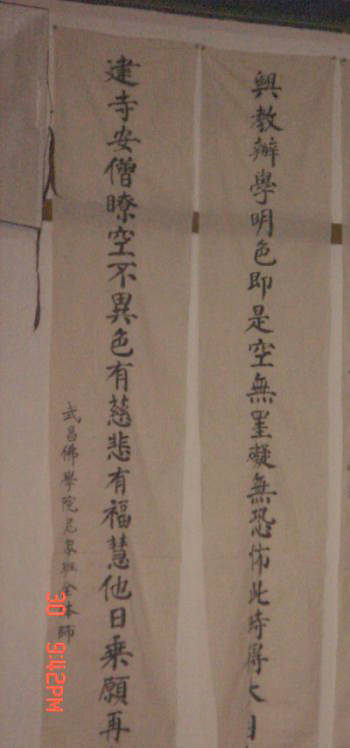 興教辦學明色即是空無罣礙無恐怖此時得大自
建寺安僧瞭空不異色有慈悲有福慧他日乘願再
武昌佛學院尼眾班全体師
30 9:42PM